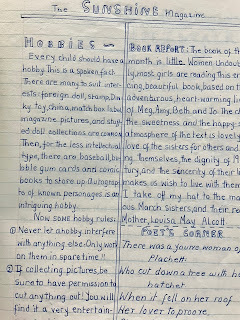 The SUNSHINE Magazine
HOBBIES
Every child should have a
hobby. This is a spoken fact.
There are many to suit inter-
ests: foreign doll, stamp, Din
ky toy, china, matchbox label
magazine pictures, and stuf
ed doll collections are common
Then, for the less intellectual
type, there are baseball, bub
ble gum cards and comic
books to store up. Autograp
of known personages is an
intriguing hobby.
Now some hobby rules:
① Never let a hobby interfere
with anything else. Only work
on them in spare time!!
② If collecting pictures, be
sure to have permission to
cut anything out! You will
find it a very entertain-
BOOK REPORT: The book of th
month is Little Women. Undoub
ly, most girls are reading this en
cing, beautiful book, based on th
adventurous, heart-warming li
of Meg, Amy, Beth and Jo. The ch
the sweetness and the happy s
atmosphere of the text is lovely.
love of the sisters for others and
ing, themselves, the dignity of 19
tury, and the sincerity of their li
makes us wish to live with them
I take off my hat to the ma
ous March Sisters, and their re
Mother, Louisa May Alcott
POET'S CORNER
There was a young woman of
Plachett
Who cut down a tree with he
hatchet.
When it fell on her roof
Her lover to proore.